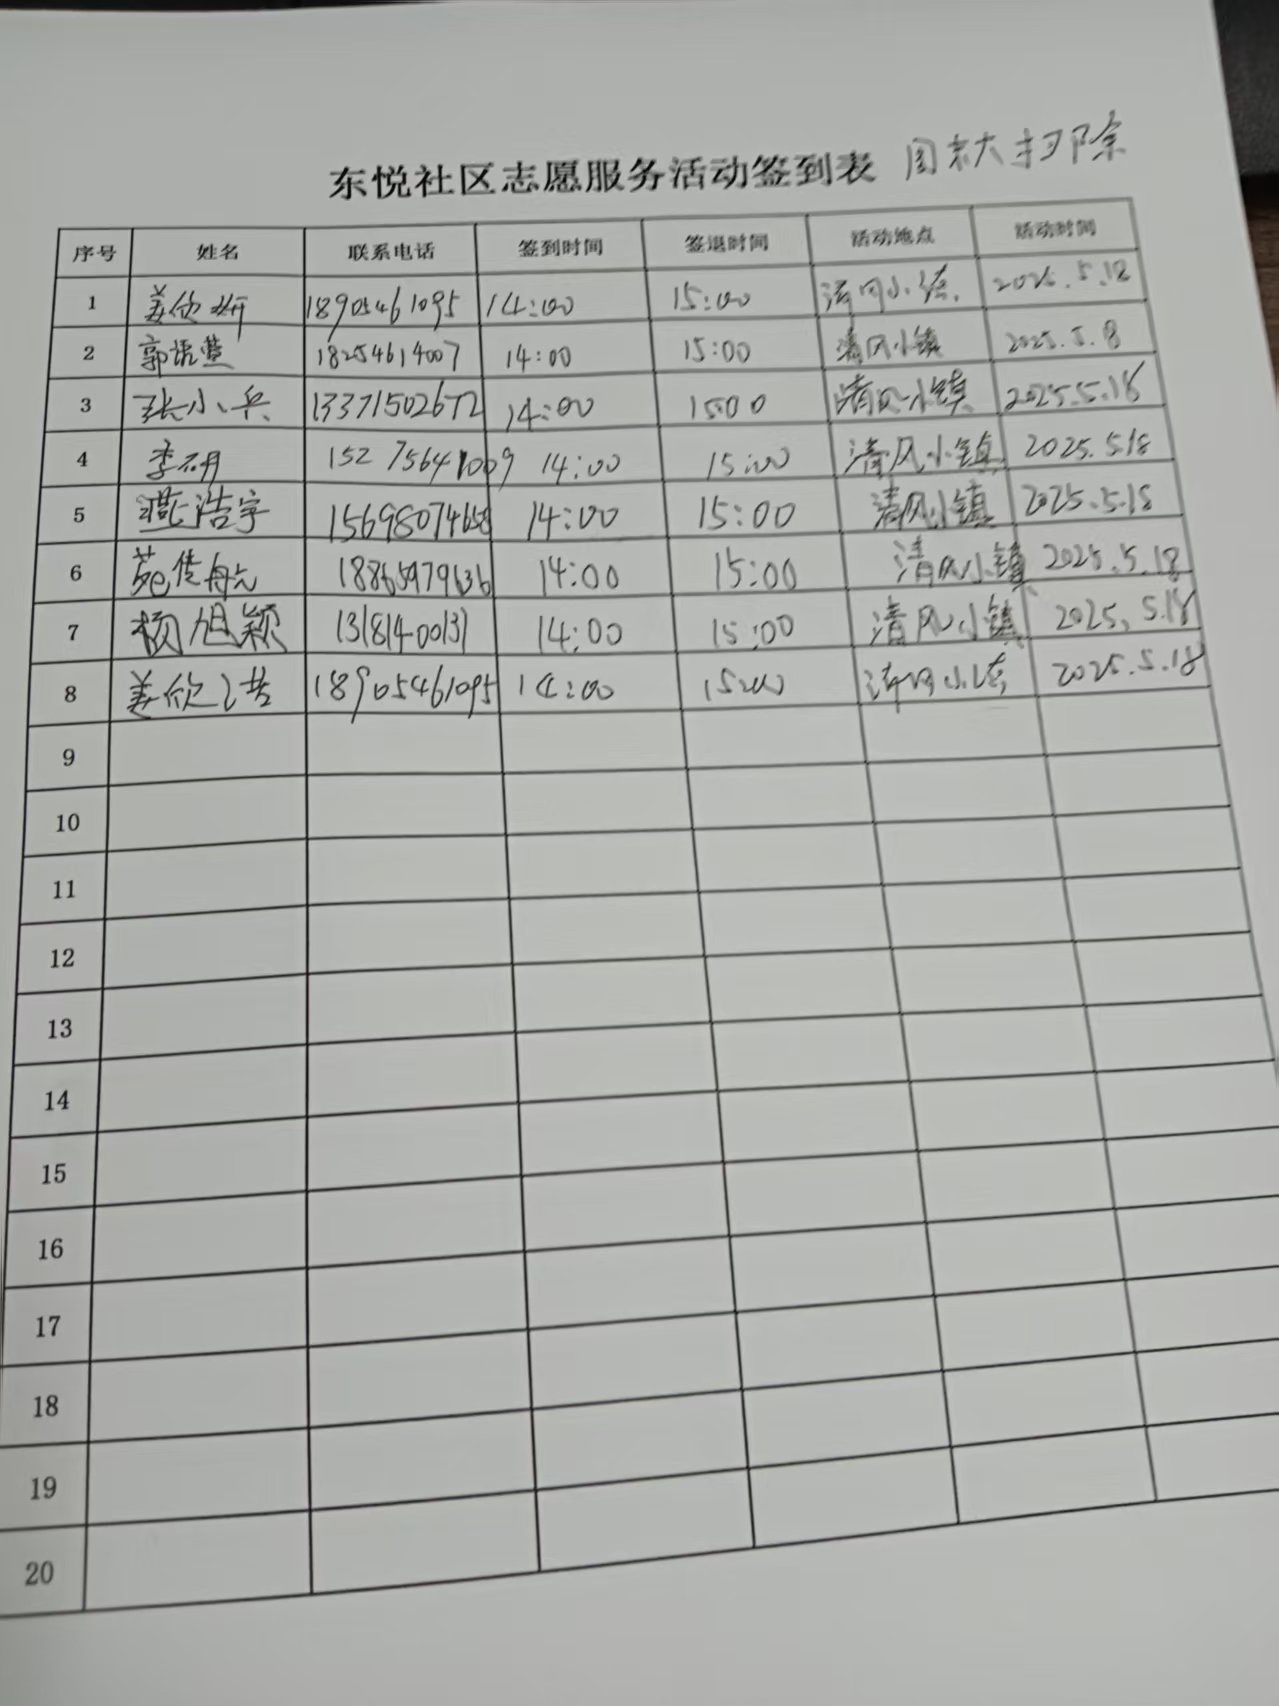 东悦社区志愿服务活动签到表 周末大扫除
序号 姓名 联系电话 签到时间 签退时间 活动地点 活动时间
1 姜欣妍 18905461095 14:00 15:00 清风小镇 2025.5.18
2 郭语萱 18254614007 14:00 15:00 清风小镇 2025.5.8
3 张小兵 13371502672 14:00 15:00 清风小镇 2025.5.18
4 李研 15275641009 14:00 15:00 清风小镇 2025.5.18
5 浩宇 15698074658 14:00 15:00 清风小镇 2025.5.18
6 苑传航 18865979636 14:00 15:00 清风小镇 2025.5.18
7 杨旭颖 13181400131 14:00 15:00 清风小镇 2025.5.18
8 姜欣 18905461095 14:00 15:00 清风小镇 2025.5.18
9
10
11
12
13
14
15
16
17
18
19
20